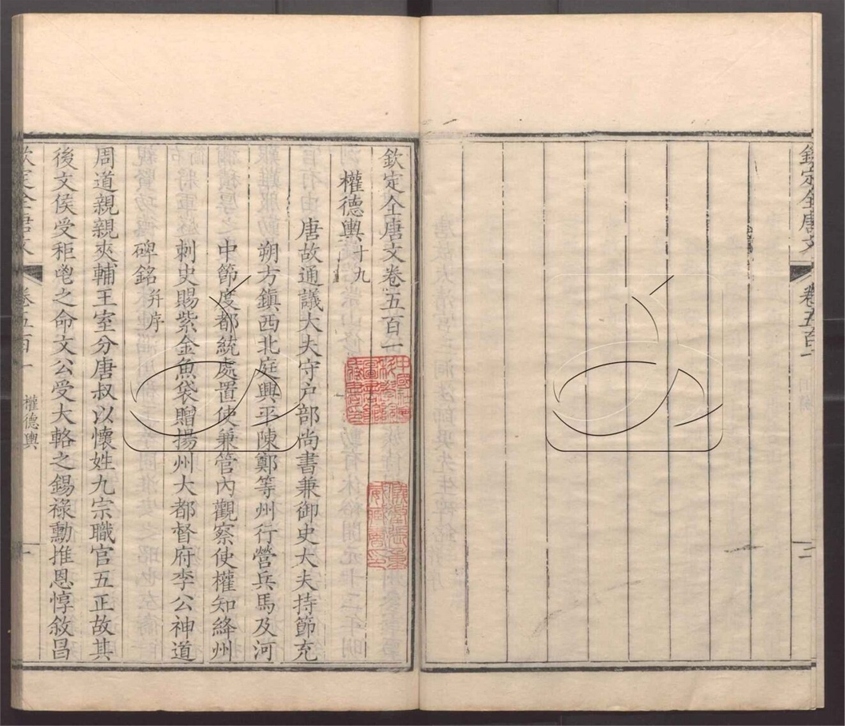 欽定全唐文
卷五百一
二
欽定全唐文卷五百一
權德輿十九
唐故通議大夫守户部尚書兼御史大夫持節充
朔方鎮西北庭興平陳鄭等州行營兵馬及河
中節度都統處置使兼管內觀察使權知絳州
刺史賜紫金魚袋贈揚州大都督府李公神道
碑銘并序
周道親親夾輔王室分唐叔以懷姓九宗職官五正故其
後文侯受秬鬯之命文公受大輅之錫祿勳推恩惇敘昌
欽定全唐文
卷五百一
權德輿
一